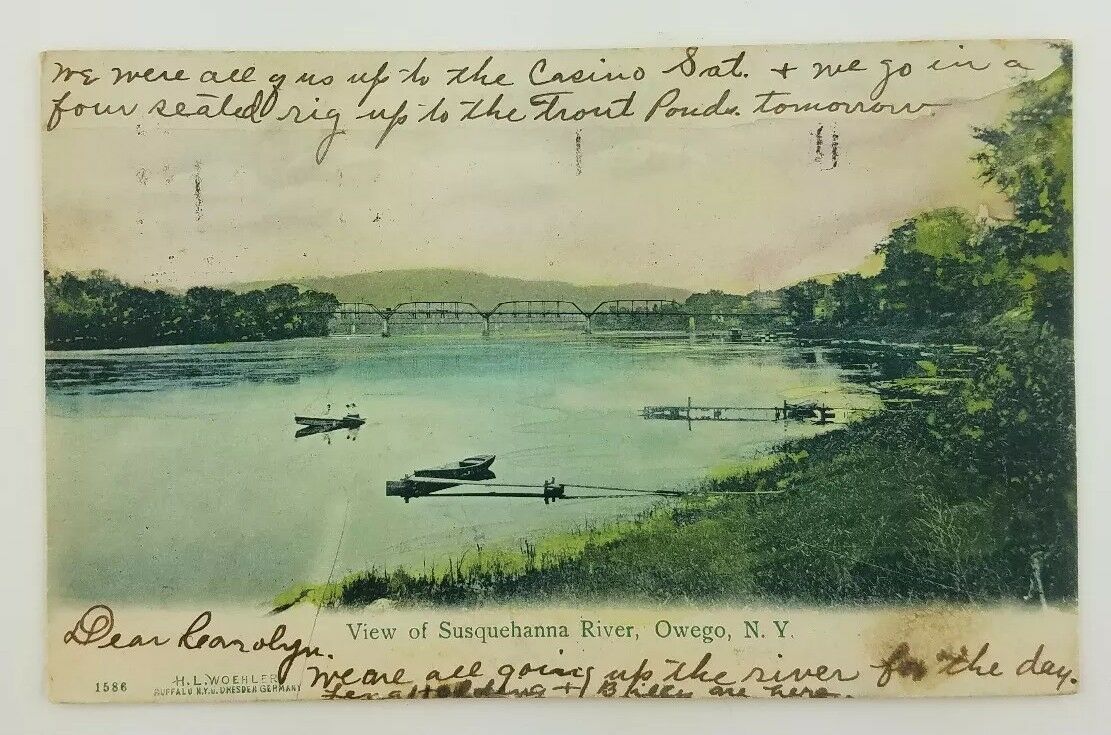 We were all of us up to the Casino Sat. + we go in a
four seated rig up to the Trout Ponds. tomorrow.
View of Susquehanna River, Owego, N. Y.
Dear Carolyn.
We are all going up the river for the day.
+ Billy are here.
1586
H. L. WOEHLER
BUFFALO N.Y. U. DRESDEN GERMANY